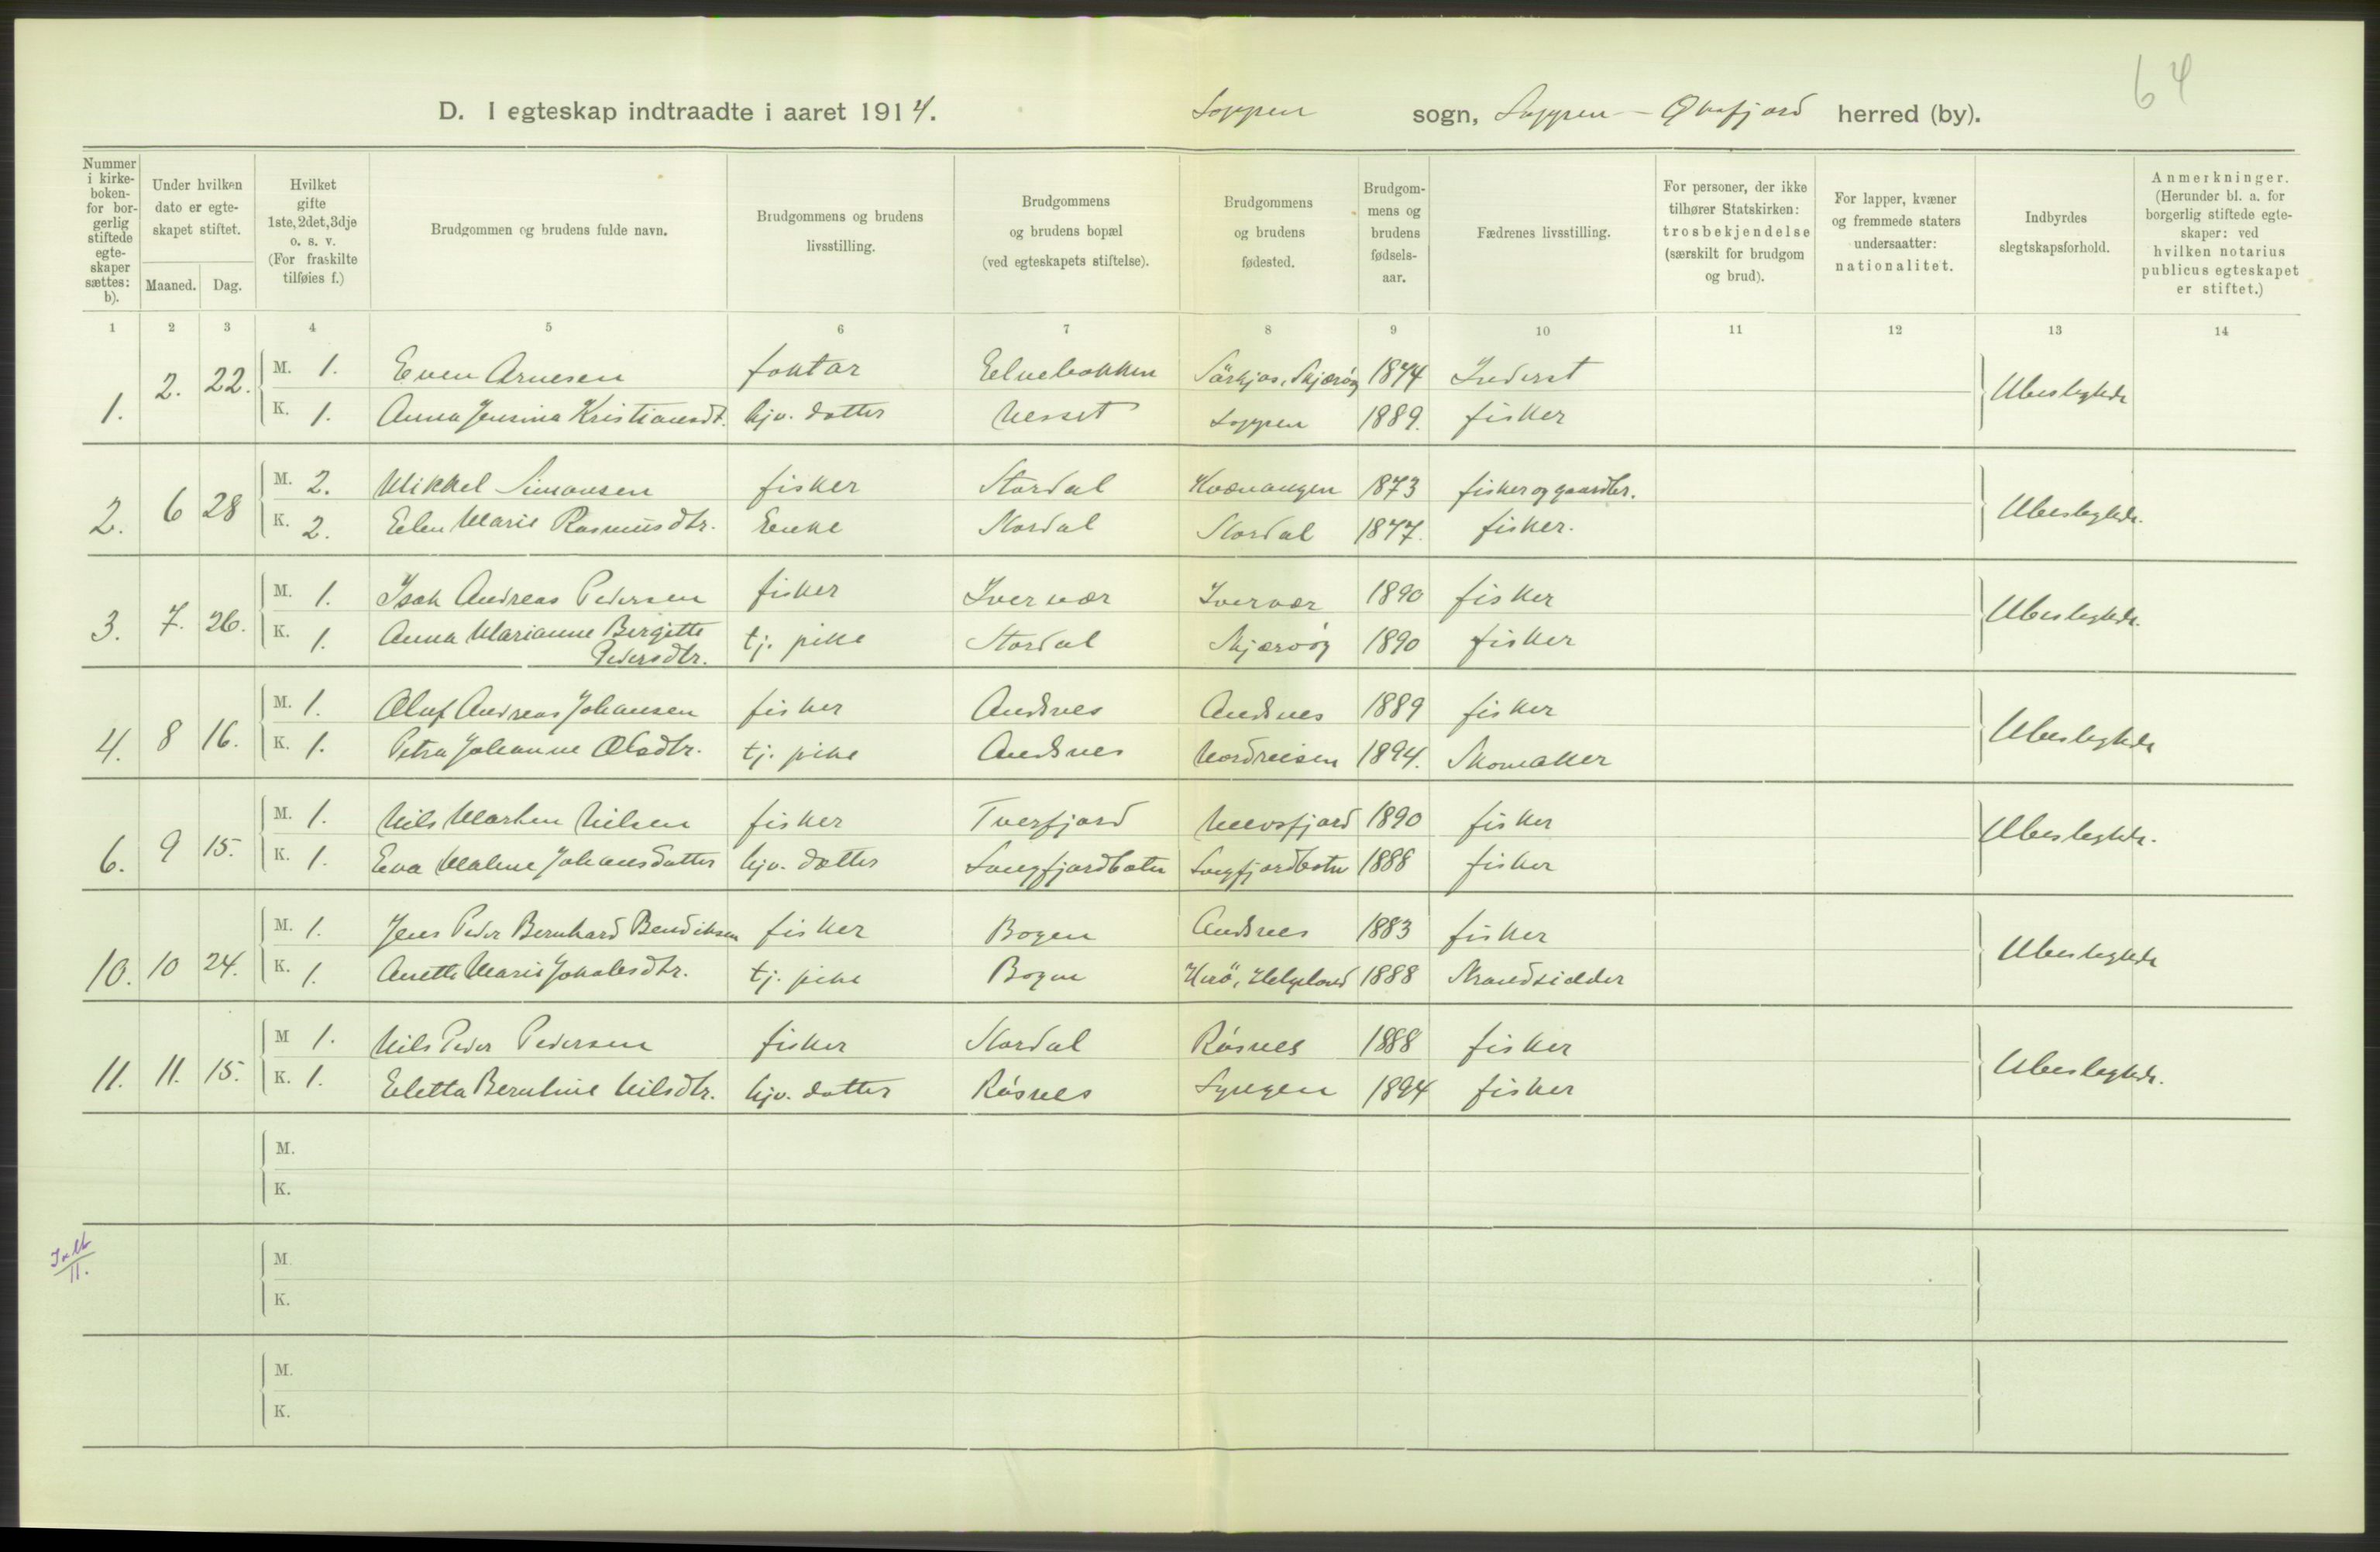 64
D. I egteskap indtraadte i aaret 1914. Loppen sogn, Loppen - Øksfjord herred (by).
Nummer i kirkeboken- for borgerlig stiftede egteskaper sættes: b).
Under hvilken dato er egteskapet stiftet.
Maaned. Dag.
Hvilket gifte 1ste, 2det, 3dje o. s. v. (For fraskilte tilføies f.)
Brudgommen og brudens fulde navn.
Brudgommens og brudens livsstilling.
Brudgommens og brudens bopæl (ved egteskapets stiftelse).
Brudgommens og brudens fødested.
Brudgommens og brudens fødselsaar.
Fædrenes livsstilling.
For personer, der ikke tilhører Statskirken: trosbekjendelse (særskilt for brudgom og brud).
For lapper, kvæner og fremmede staters undersaatter: nationalitet.
Indbyrdes slegtskapsforhold.
Anmerkninger. (Herunder bl. a. for borgerlig stiftede egteskaper: ved hvilken notarius publicus egteskapet er stiftet.)
1 2 3 4 5 6 7 8 9 10 11 12 13 14
1. 2. 22. M. 1. Even Arnesen foktar Elvebakken Sörkjos, Skjærvøy 1874 Inderst Ubeslegtede
K. 1. Anna Jensina Kristiansdt. hjv. datter Nesset Loppen 1889. fisker
2. 6 28 M. 2. Mikkel Simonsen fisker Stordal Kvænangen 1873 fisker og gaardbr. Ubeslegtede.
K. 2. Elen Marie Rasmusdtr. Enke Stordal Stordal 1877. fisker.
3. 7. 26. M. 1. Isak Andreas Pedersen fisker Ivervær Ivervær 1890 fisker Ubeslegtede.
K. 1. Anna Marianne Bergitte Pedersdtr. tj. pike Stordal Skjærvöy 1890 fisker
4. 8 16. M. 1. Oluf Andreas Johansen fisker Andsnes Andsnes 1889 fisker Ubeslegtede
K. 1. Petra Johanne Olsdtr. tj. pike Andsnes Nordreisen 1894. Skomaker
6. 9 15. M. 1. Nils Morten Nilsen fisker Tverfjord Mevosfjord 1890 fisker Ubeslegtede.
K. 1. Eva Maline Johansdatter hjv. datter Langfjordbotn Langfjordbotn 1888 fisker
10. 10 24. M. 1. Jens Peder Bernhard Bendiksen fisker Bogen Andsnes 1883 fisker Ubeslegtede
K. 1. Anette Marie Jakobsdtr. tj. pike Bogen Herö, Helgeland 1888 Strandsidder
11. 11. 15. M 1. Nils Peder Pedersen fisker Stordal Räsnes 1888 fisker Ubeslegtede.
K. 1. Eletta Berntine Nilsdtr. hjv. datter Räsnes Lyngen 1894 fisker
M.
K.
Ialt
11.
M.
K.
M.
K.